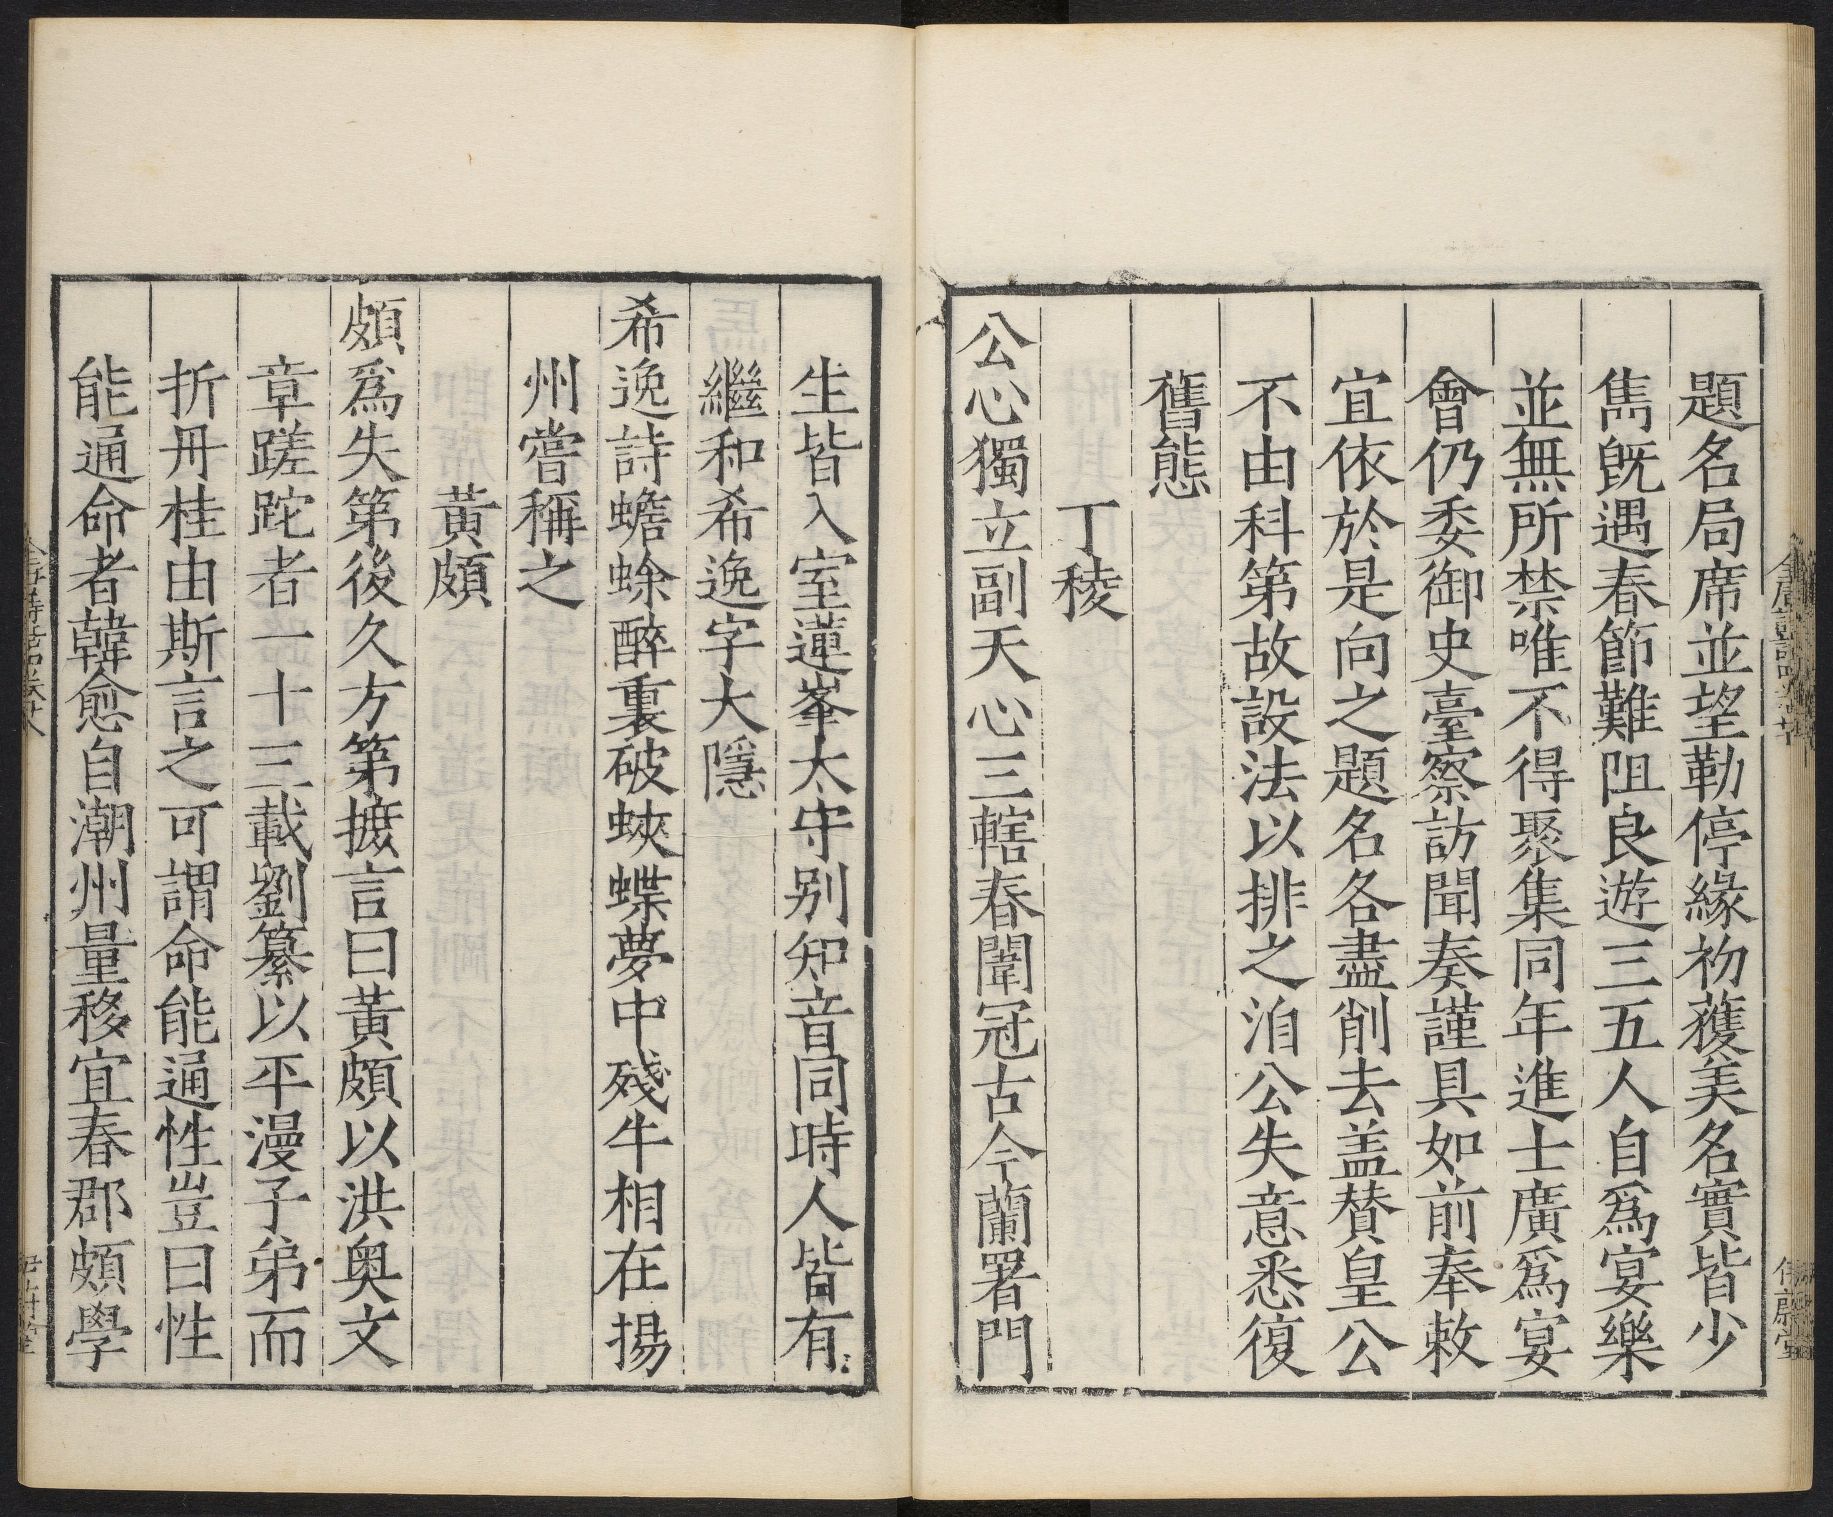 題名局席並望勒停緣初獲美名實皆少
雋既遇春節難阻良遊三五人自爲宴樂
並無所禁唯不得聚集同年進士廣爲宴
會仍委御史臺察訪聞奏謹具如前奉敕
宜依於是向之題名各盡削去盖賛皇公
不由科第故設法以排之洎公失意悉復
舊態
丁稜
公心獨立副天心三轄春闈冠古今蘭署門
生皆入室蓮峯太守别知音同時人皆有
繼和希逸字大隱
希逸詩蟾蜍醉裏破蛺蝶夢中殘牛相在揚
州嘗稱之
黃頗
頗爲失第後久方第摭言曰黃頗以洪奥文
章蹉跎者一十三載劉纂以平漫子弟而
折丹桂由斯言之可謂命能通性豈曰性
能通命者韓愈自潮州量移宜春郡頗學